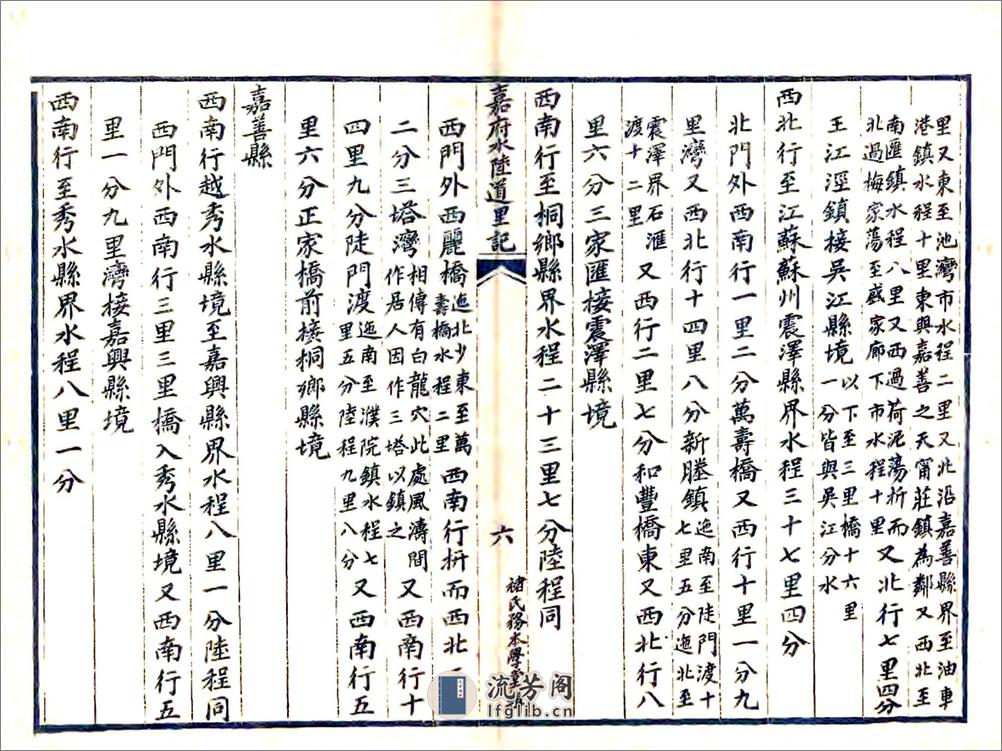 里又東至池灣市水程二里又北沿嘉善縣界至油車
港鎮水程十里東與嘉善之天甯莊鎮為鄰又西北至
南匯鎮水程八里又西過荷泥蕩折而
北過梅家蕩至感家廊下市水程十里又北行七里四分
王江涇鎮接吳江縣境以下至三里橋十六里
一分皆與吳江分水
西北行至江蘇蘇州震澤縣界水程三十七里四分
北門外西南行一里二分萬壽橋又西行十里一分九
里灣又西北行十四里八分新塍鎮迤南至陡門渡十
七里五分迤北至
震澤界石滙
渡十二里又西行二里七分和豐橋東又西北行八
里六分三家匯接震澤縣境
西南行至桐鄉縣界水程二十三里七分陸程同
嘉府水陸道里記
六
褚氏務本學堂
西門外西麗橋迤北少東至萬
壽橋水程二里西南行折而西北一里
二分三塔灣相傳有白龍穴此處風濤間
作居人因作三塔以鎮之又西南行十
四里九分陡門渡迤南至濮院鎮水程七
里五分陸程九里八分又西南行五
里六分正家橋前接桐鄉縣境
嘉善縣
西南行越秀水縣境至嘉興縣界水程八里一分陸程同
西門外西南行三里三里橋入秀水縣境又西南行五
里一分九里灣接嘉興縣境
西南行至秀水縣界水程八里一分
流芳阁
lfglib.cn